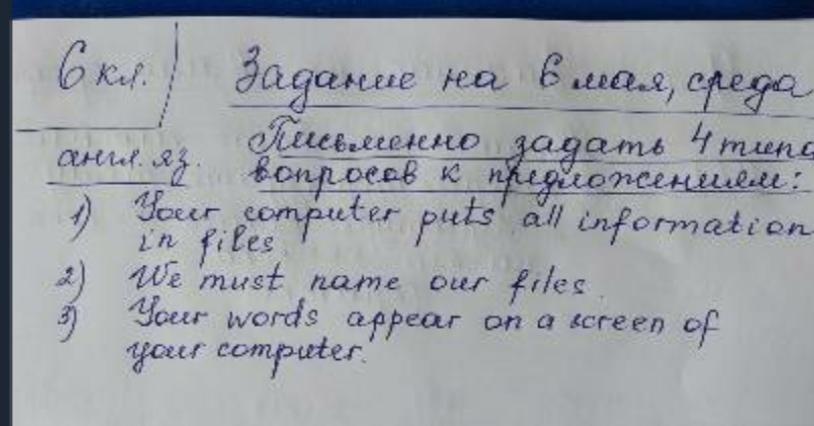 6 кл. Задание на 6 мая, среда
англ. яз. Письменно задать 4 типа
вопросов к предложениям:
1) Your computer puts all information
in files
2) We must name our files.
3) Your words appear on a screen of
your computer.